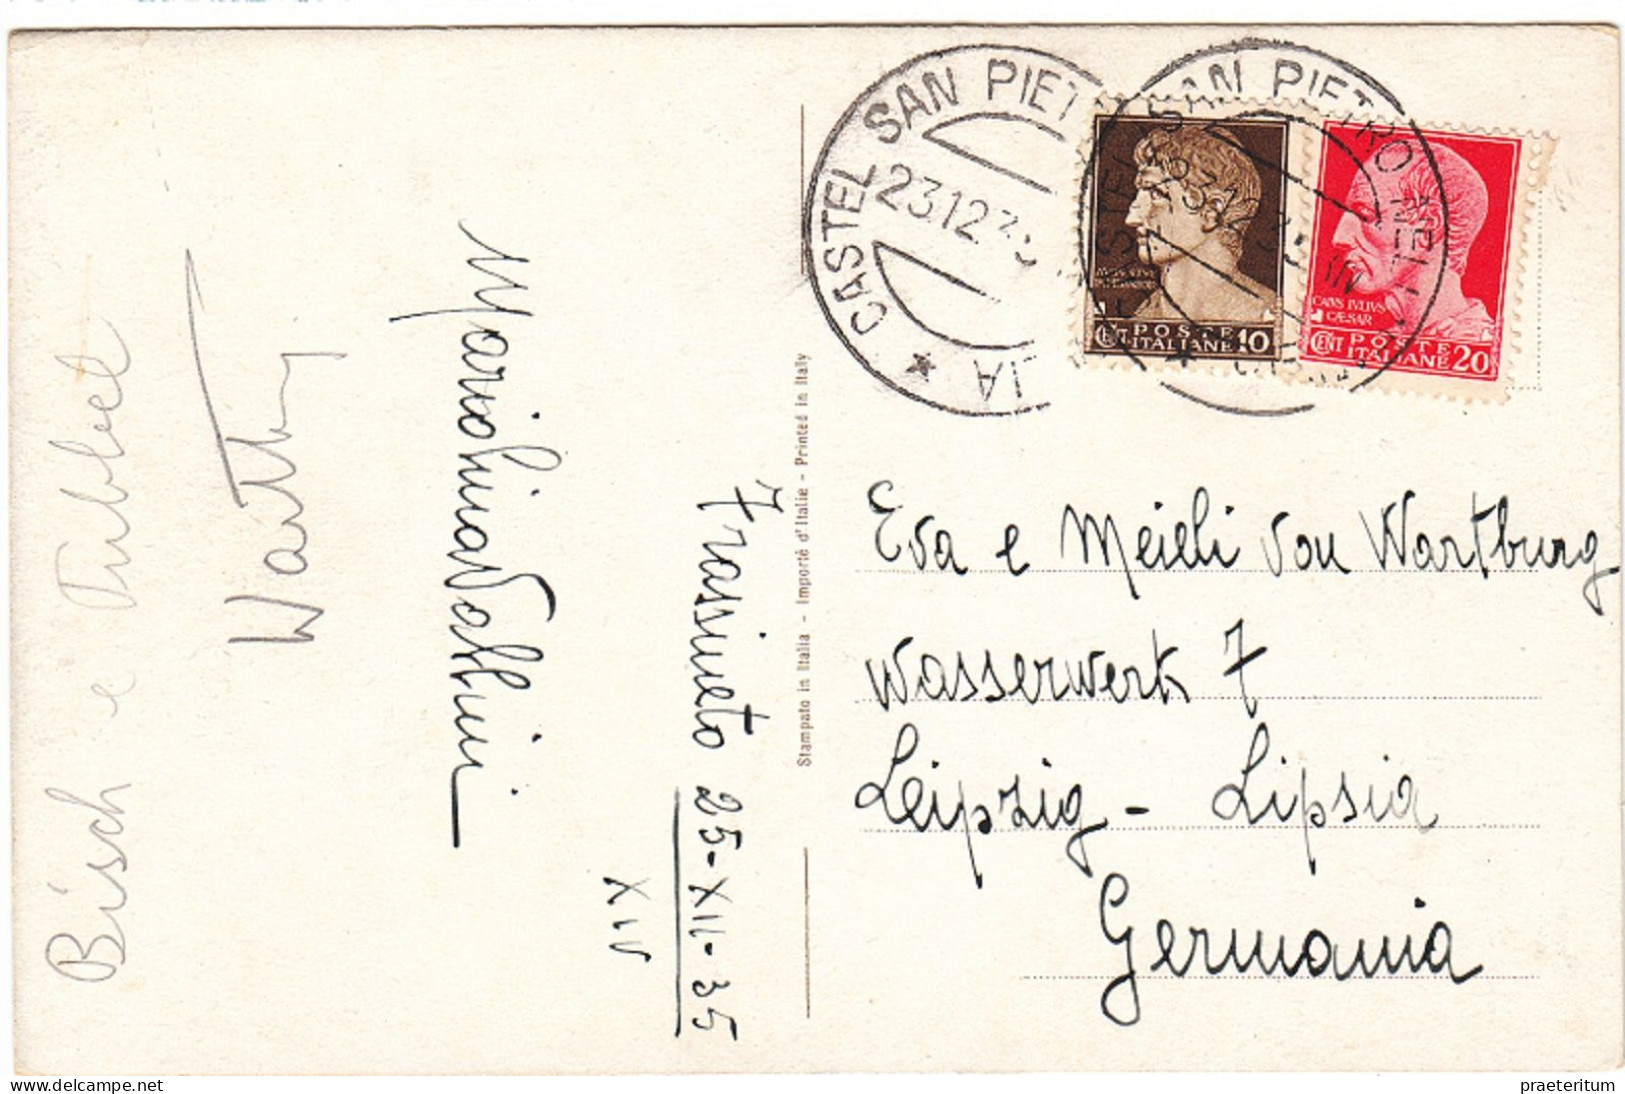 CASTEL SAN PIET
23.12.35
CENT POSTE ITALIANE 10
SAN PIETRO
CAIVS IVLIVS
CAESAR
CENT POSTE ITALIANE 20
Eva e Meieli von Wartburg
Wasserwerk 7
Leipzig - Lipsia
Germania
Stampato in Italia - Importé d'Italie - Printed in Italy
Frassineto 25-XII-35
XIV
Wartburg
Bäsch e
delcampe.net
praeteritum